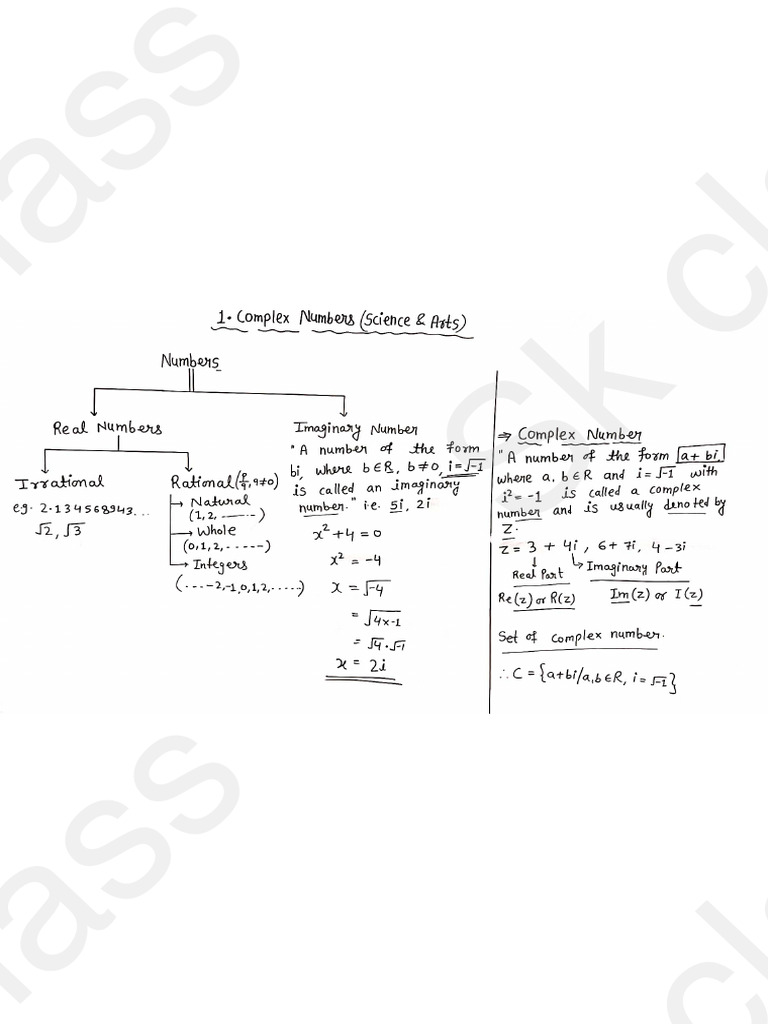 1. Complex Numbers (Science & Arts)
Numbers
Real Numbers
Irrational
eg. 2.134568943...
√2, √3
Rational (p/q, q≠0)
→ Natural
(1, 2, .......)
→ Whole
(0, 1, 2, ......)
→ Integers
(....-2, -1, 0, 1, 2, .....)
Imaginary Number
"A number of the form
bi, where b∈R, b≠0, i=√-1
is called an imaginary
number." i.e. 5i, 2i
x²+4=0
x² = -4
x = √-4
= √4x-1
= √4.√-1
x = 2i
⇒ Complex Number
"A number of the form a+bi,
where a, b∈R and i=√-1 with
i²=-1 is called a complex
number and is usually denoted by
Z.
Z = 3 + 4i, 6+7i, 4-3i
Real Part
Imaginary Part
Re(z) or R(z)
Im(z) or I(z)
Set of complex number.
∴ C = {a+bi/a,b∈R, i=√-1}
ass
sk cl
ass
cl